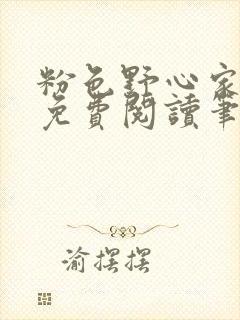 粉色野心家
免費閱讀筆
渝摆摆